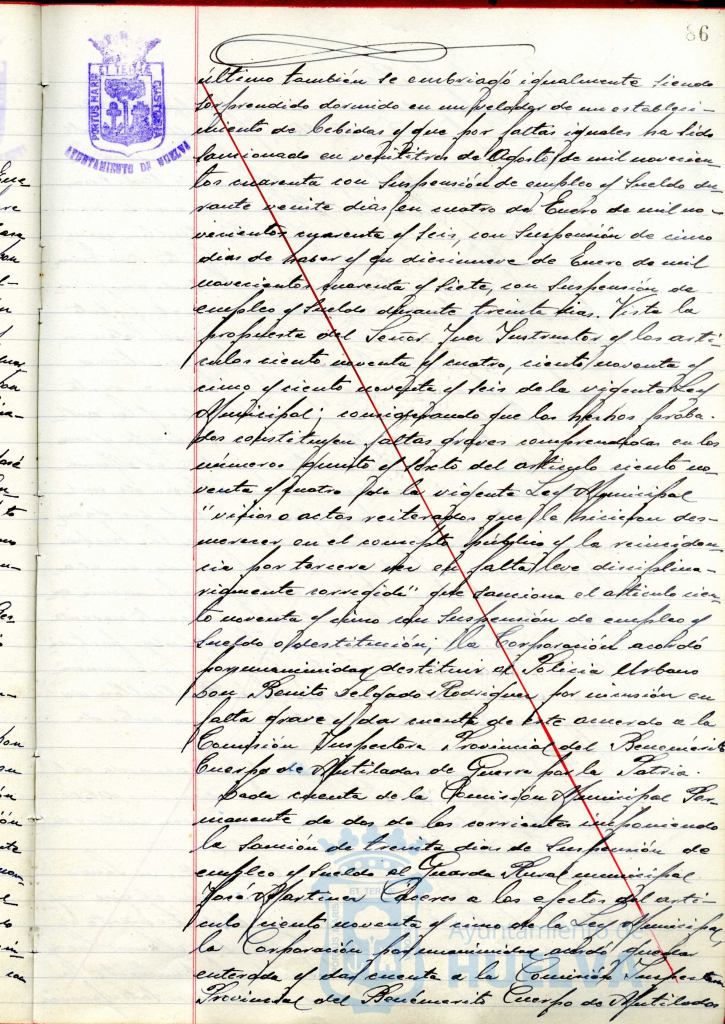 86
VIRTUS MARIS ET TERRÆ CUSTODIA
AYUNTAMIENTO DE HUELVA
último también se embriagó igualmente siendo
sorprendido dormido en un velador de un estableci-
miento de bebidas y que por faltas iguales ha sido
sancionado en veintitres de Agosto de mil novecien
tos cuarenta con suspensión de empleo y sueldo du
rante veinte dias, en cuatro de Enero de mil no-
vecientos cuarenta y seis, con suspensión de cinco
dias de haber y en diecinueve de Enero de mil
novecientos cuarenta y siete, con suspensión de
empleo y sueldo durante treinta dias. Vista la
propuesta del Señor Juez Instructor y los artí-
culos ciento noventa y cuatro, ciento noventa y
cinco y ciento noventa y seis de la vigente Ley
Municipal; considerando que los hechos proba-
dos constituyen faltas graves comprendidas en los
números quinto y sexto del artículo ciento no
venta y cuatro de la vigente Ley Municipal
"vicios o actos reiterados que le hicieron des-
merecer en el concepto público y la reinciden-
cia por tercera vez en falta leve disciplina-
riamente corregida" que sanciona el artículo cien-
to noventa y cinco con suspensión de empleo y
sueldo o destitución; la Corporación acordó
por unanimidad destituir al Policia Urbano
Don Benito Delgado Rodriguez por incursión en
falta grave y dar cuenta de este acuerdo a la
Comisión Inspectora Provincial del Benemérito
Cuerpo de Mutilados de Guerra por la Patria.
Dada cuenta de la Comisión Municipal Per
manente de dos de los corrientes imponiendo
la sanción de treinta dias de suspensión de
empleo y sueldo al Guarda Rural municipal
José Martinez Caceres a los efectos del artí-
culo ciento noventa y cinco de la Ley Municipal
la Corporación por unanimidad acordó quedar
enterada y dar cuenta a la Comisión Inspectora
Provincial del Benémerito Cuerpo de Mutilados
Ayuntamiento de
HUELVA